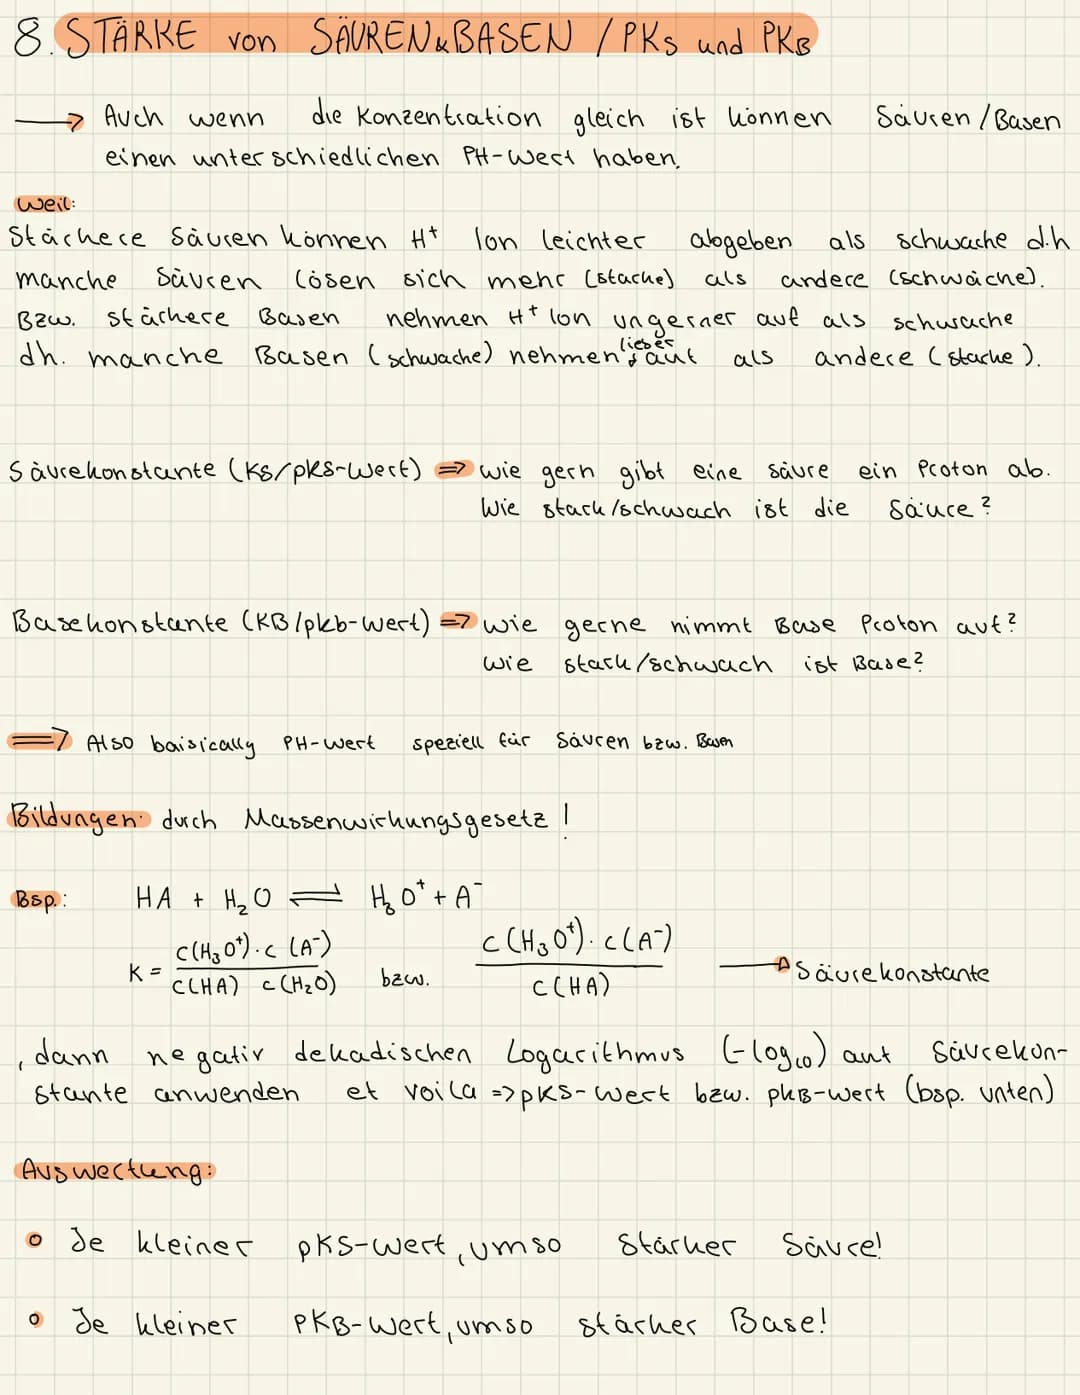 8. STÄRKE von SÄUREN & BASEN / PKs und PKB
→ Auch wenn die Konzentration gleich ist können Säuren / Basen
einen unterschiedlichen PH-Wert haben.
Weil:
Stärkere Säuren können H⁺ Ion leichter abgeben als schwache d.h
manche Säuren lösen sich mehr (starke) als andere (schwäche).
Bzw. stärkere Basen nehmen H⁺ Ion ungerner auf als schwache
dh. manche Basen (schwache) nehmen lieber auf als andere (starke).
Säurekonstante (KS/pKS-Wert) ⇒ wie gern gibt eine säure ein Proton ab.
Wie stark/schwach ist die Säure?
Basekonstante (KB/pkb-Wert) ⇒ wie gerne nimmt Base Proton auf?
wie stark/schwach ist Base?
⇒ Also baisically PH-Wert speziell für Säuren bzw. Basen
Bildungen: durch Massenwirkungsgesetz!
Bsp.: HA + H₂O ⇌ H₃O⁺ + A⁻
K = c(H₃O⁺)·c(A⁻) / c(HA) c(H₂O) bzw. c(H₃O⁺)·c(A⁻) / c(HA) → Säurekonstante
, dann negativ dekadischen Logarithmus (-log₁₀) auf Säurekon-
stante anwenden et voila => pKS-Wert bzw. pkB-Wert (bsp. unten)
Auswertung:
○ Je kleiner pKS-Wert, umso Stärker Säure!
○ Je kleiner PKB-Wert, umso stärker Base!